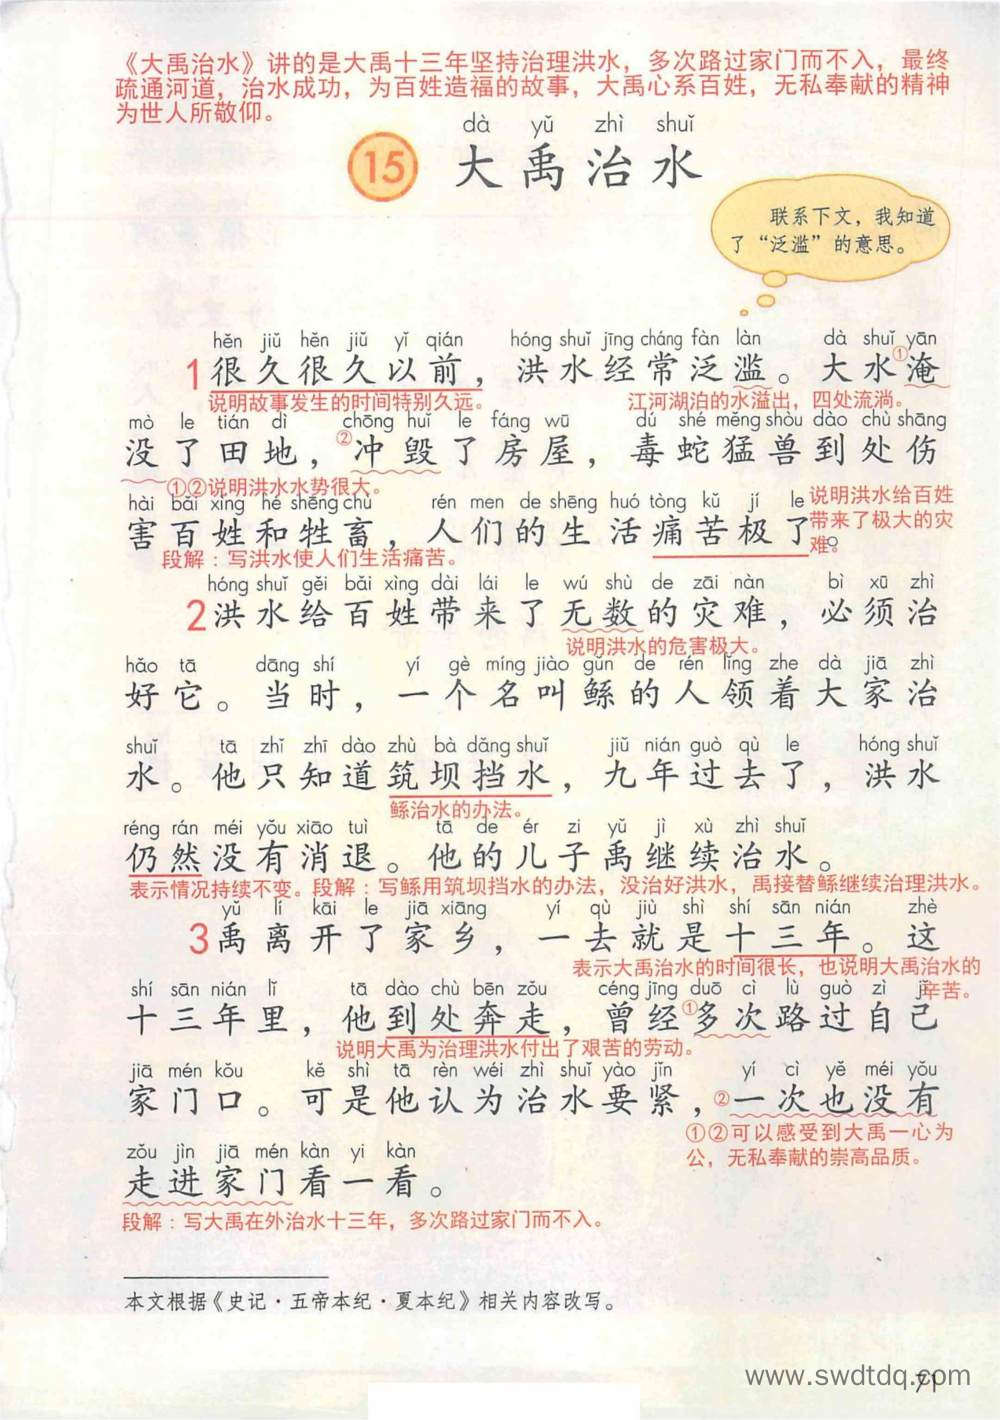 《大禹治水》讲的是大禹十三年坚持治理洪水，多次路过家门而不入，最终
疏通河道，治水成功，为百姓造福的故事，大禹心系百姓，无私奉献的精神
为世人所敬仰。
dà yǔ zhì shuǐ
15 大禹治水
联系下文，我知道
了“泛滥”的意思。
hěn jiǔ hěn jiǔ yǐ qián hóng shuǐ jīng cháng fàn làn dà shuǐ yān
1 很久很久以前，洪水经常泛滥。大水①淹
说明故事发生的时间特别久远。 江河湖泊的水溢出，四处流淌。
mò le tián dì chōng huǐ le fáng wū dú shé měng shòu dào chù shāng
没了田地，②冲毁了房屋，毒蛇猛兽到处伤
①②说明洪水水势很大。
hài bǎi xìng hé shēng chù rén men de shēng huó tòng kǔ jí le
害百姓和牲畜，人们的生活痛苦极了。
说明洪水给百姓
带来了极大的灾
难。
段解：写洪水使人们生活痛苦。
hóng shuǐ gěi bǎi xìng dài lái le wú shù de zāi nàn bì xū zhì
2 洪水给百姓带来了无数的灾难，必须治
说明洪水的危害极大。
hǎo tā dāng shí yí gè míng jiào gǔn de rén lǐng zhe dà jiā zhì
好它。当时，一个名叫鲧的人领着大家治
shuǐ tā zhǐ zhī dào zhù bà dǎng shuǐ jiǔ nián guò qù le hóng shuǐ
水。他只知道筑坝挡水，九年过去了，洪水
鲧治水的办法。
réng rán méi yǒu xiāo tuì tā de ér zi yǔ jì xù zhì shuǐ
仍然没有消退。他的儿子禹继续治水。
表示情况持续不变。段解：写鲧用筑坝挡水的办法，没治好洪水，禹接替鲧继续治理洪水。
yǔ lí kāi le jiā xiāng yí qù jiù shì shí sān nián zhè
3 禹离开了家乡，一去就是十三年。这
表示大禹治水的时间很长，也说明大禹治水的
辛苦。
shí sān nián lǐ tā dào chù bēn zǒu céng jīng duō cì lù guò zì jǐ
十三年里，他到处奔走，曾经①多次路过自己
说明大禹为治理洪水付出了艰苦的劳动。
jiā mén kǒu kě shì tā rèn wéi zhì shuǐ yào jǐn yí cì yě méi yǒu
家门口。可是他认为治水要紧，②一次也没有
①②可以感受到大禹一心为
公，无私奉献的崇高品质。
zǒu jìn jiā mén kàn yi kàn
走进家门看一看。
段解：写大禹在外治水十三年，多次路过家门而不入。
本文根据《史记·五帝本纪·夏本纪》相关内容改写。
www.swdtdq.com
71